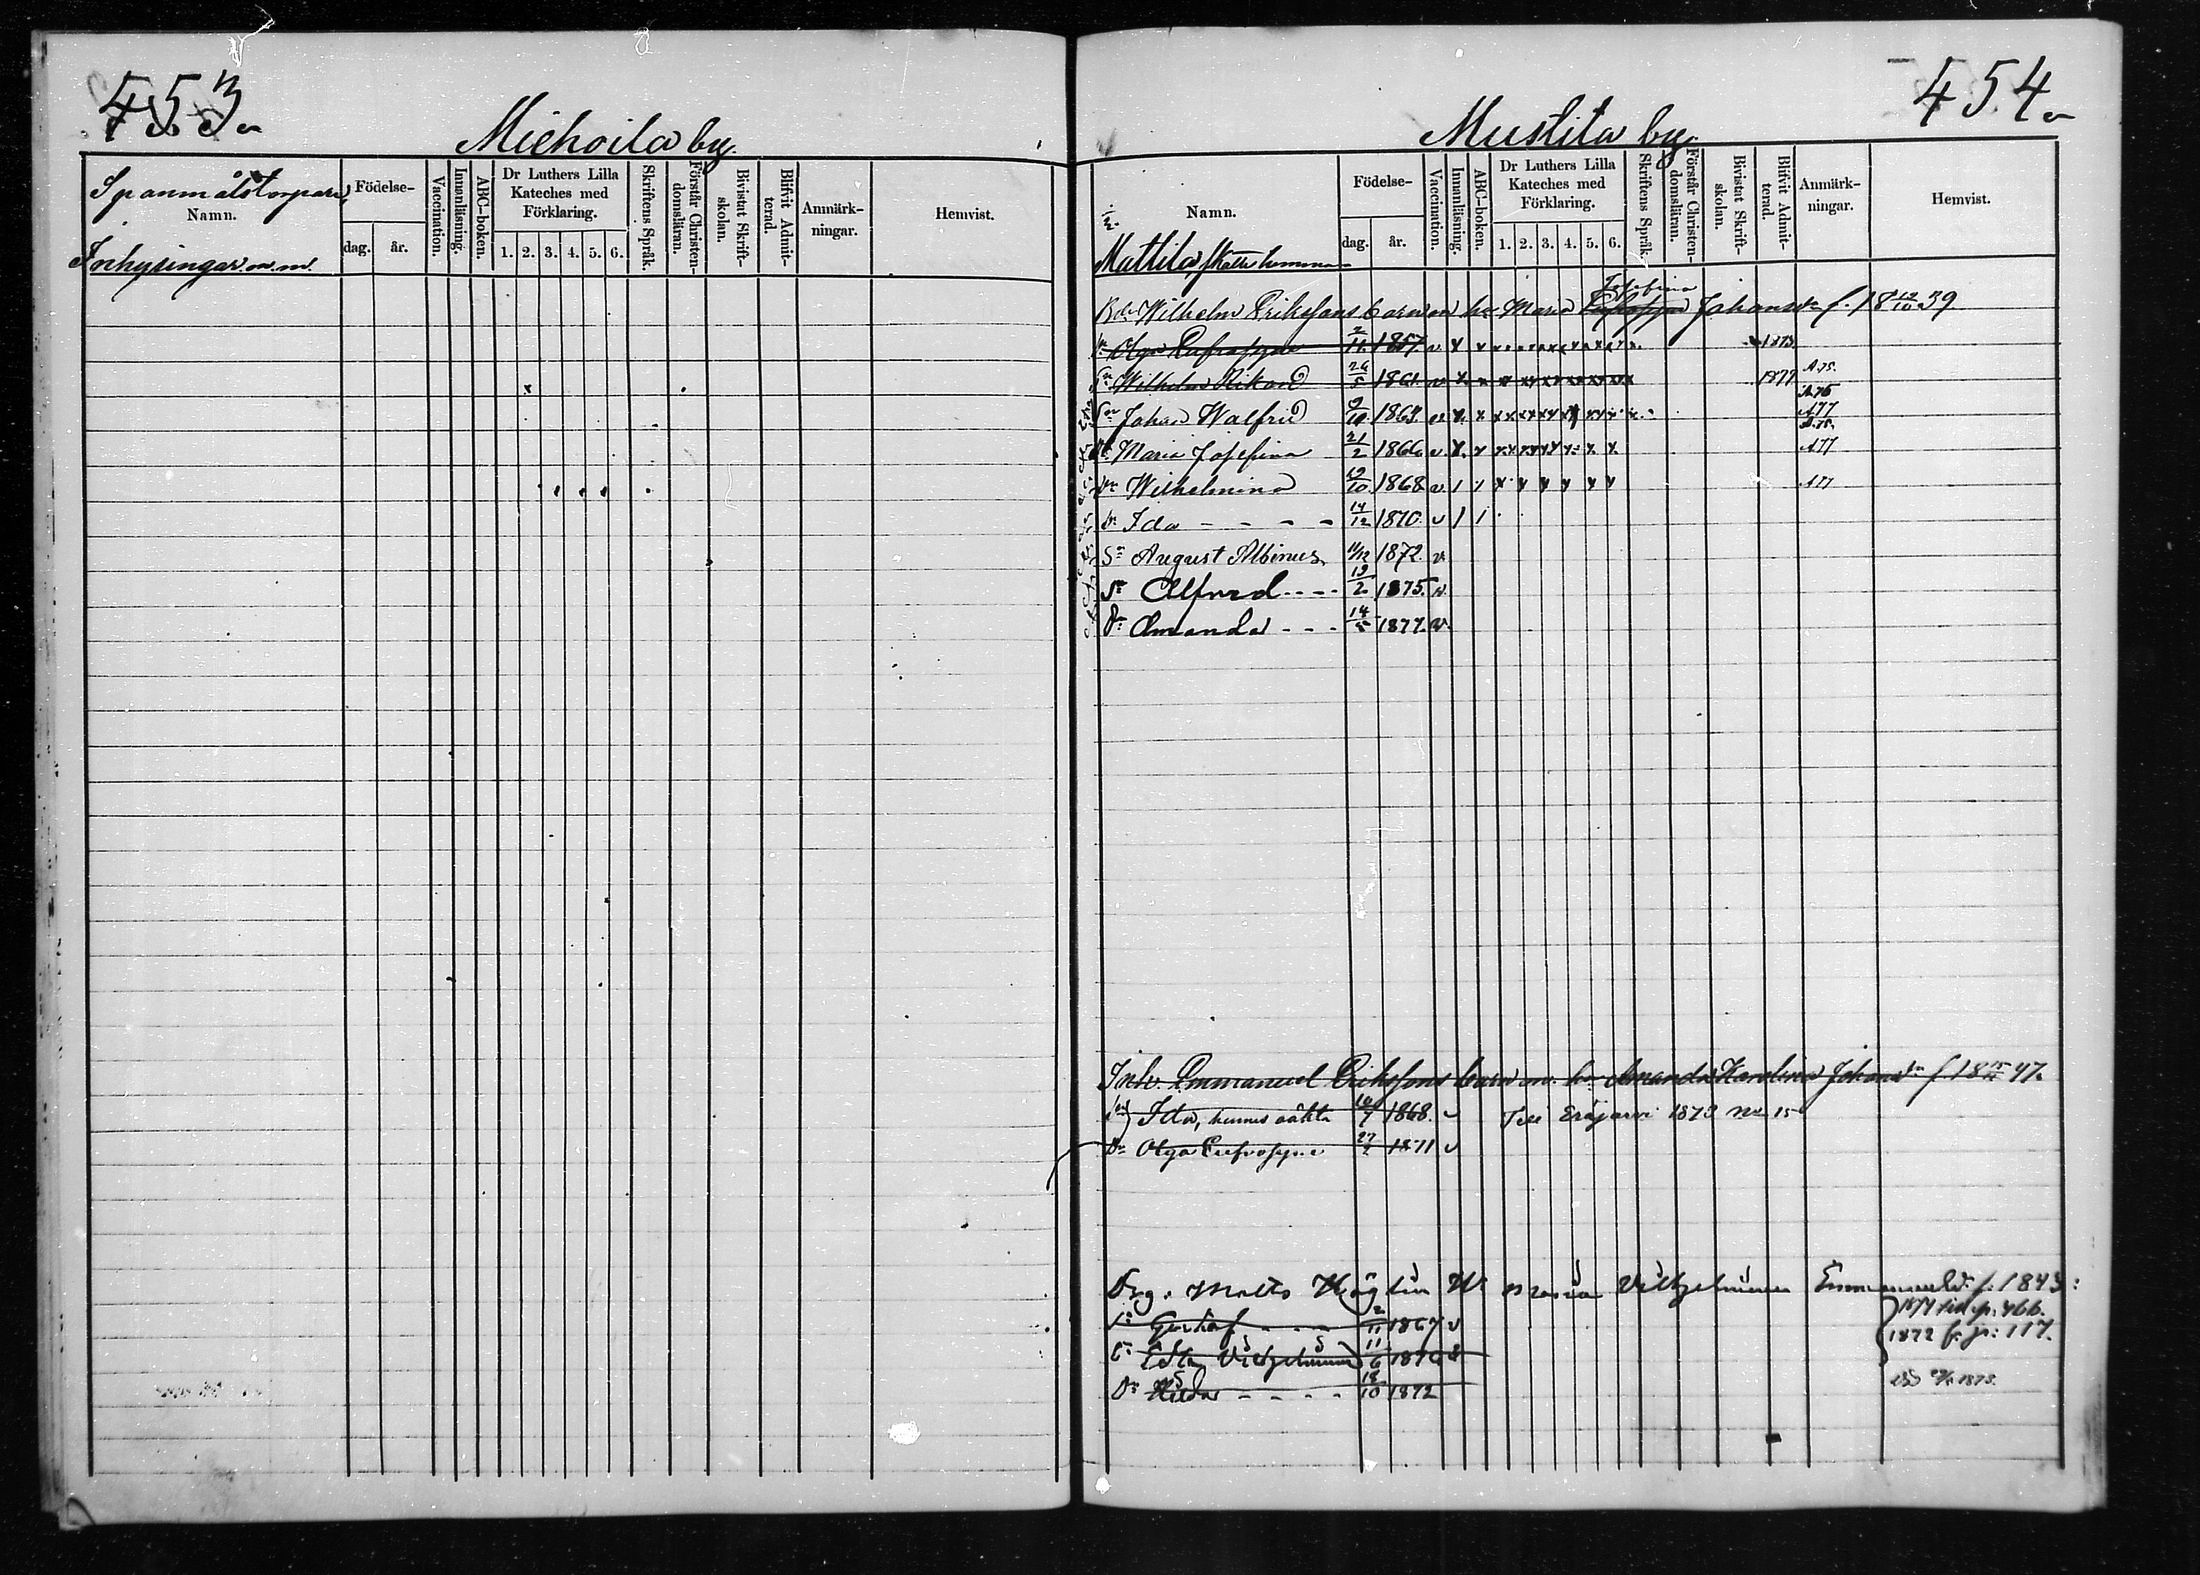 453
Miehoila by.
Spanmålstorpare,
Namn.
Inhysingar m. m.
Födelse-
dag. år.
Vaccination.
Innanläsning.
ABC-boken.
Dr Luthers Lilla
Kateches med
Förklaring.
1. 2. 3. 4. 5. 6.
Skriftens Språk.
Förstår Christen-
domsläran.
Bivistat Skrift-
skolan.
Blifvit Admit-
terad.
Anmärk-
ningar.
Hemvist.
454
Mustila by
Namn.
Mattila, skatte hemman
Födelse-
dag. år.
Vaccination.
Innanläsning.
ABC-boken.
Dr Luthers Lilla
Kateches med
Förklaring.
1. 2. 3. 4. 5. 6.
Skriftens Språk.
Förstår Christen-
domsläran.
Bivistat Skrift-
skolan.
Blifvit Admit-
terad.
Anmärk-
ningar.
Hemvist.
Josefina
Wilhelm Erikssons barn m. h. Maria Johansdr f. 18 12/10 39
Dr Olga Eufrosyne 2/11 1857 v x x 1873
Sn Wilhelm Rikard 26/5 1861 v x x 1877 A.75.
Sn Johan Walfrid 1864 v x x A.76 A77
Dr Maria Josefina 21/2 1866 v x x A.75. A77
Dr Wilhelmina 19/10 1868 v / / x x x x x x A77
Dr Ida - - - - 14/12 1870 v / /
Sn August Albinus 11/12 1872 v
Sn Alfred - - - - 19/2 1875. v.
Dr Amanda - - - 14/5 1877. v.
Inh. Emmanuel Erikssons barn m. h. Amanda Karolina Johansdr f. 18 47.
Ida, hennes oäkta 10/7 1868. v Till Eräjärvi 1873 No 15
Dr Olga Eufrosyne 27/2 1871 v
Drg. Matts Höglin H. Maria Vilhelmina Emmanueldr f. 1843:
Sn Gustaf - - - - 2/11 1867 v 1874 till p. 466.
1872 fr. p: 117.
Dr Edla Vilhelmina 11/6 1870
Dr Hilda - - - - 18/10 1872 1873.